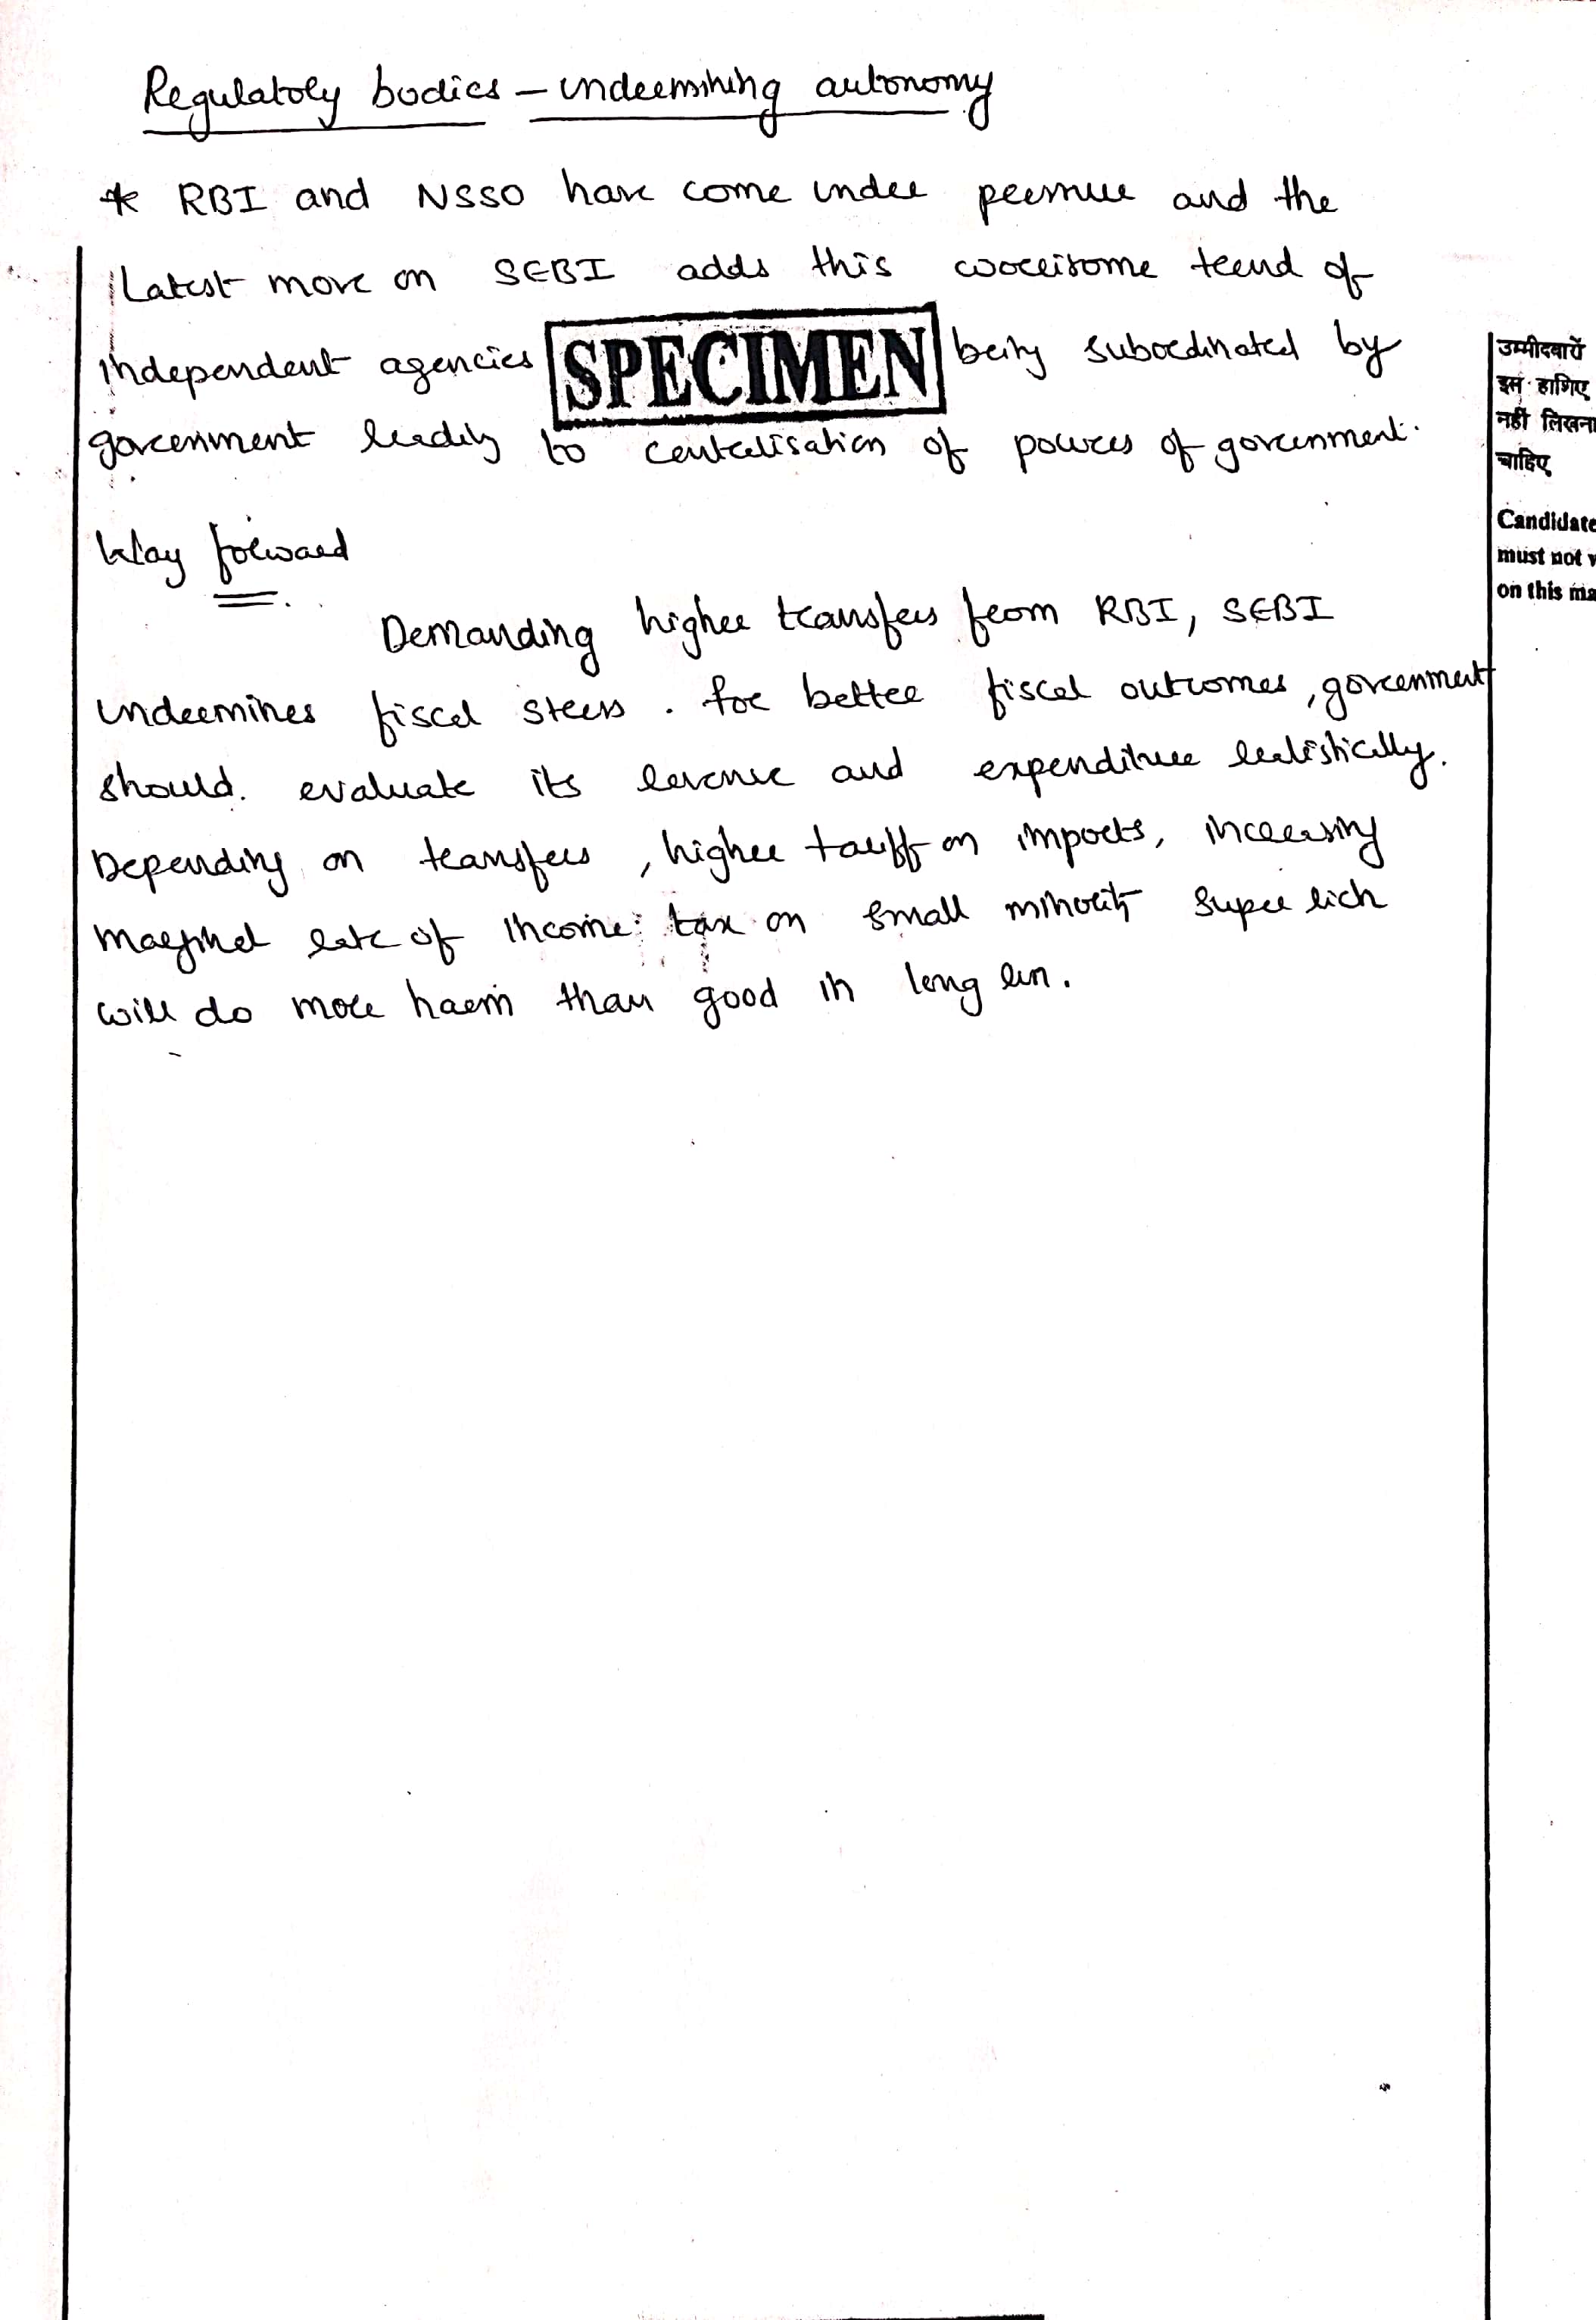 Regulatory bodies – undermining autonomy
* RBI and NSSO have come under pressure and the
Latest move on SEBI adds this worrisome trend of
independent agencies SPECIMEN being subordinated by
government leading to centralisation of powers of government.
Way forward
Demanding higher transfers from RBI, SEBI
undermines fiscal stress. For better fiscal outcomes, government
should. evaluate its revenue and expenditure realistically.
Depending on transfers, higher tariff on imports, increasing
marginal rate of income tax on small minority super rich
will do more harm than good in long run.
उम्मीदवारों
इस हाशिए
नहीं लिखना
चाहिए
Candidate
must not
on this